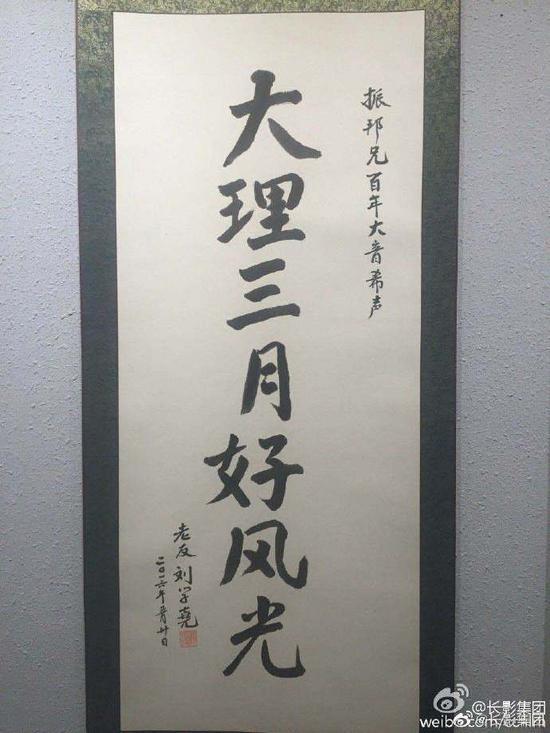 振邦兄百年大音希声
大理三月好风光
老友刘学尧
二〇一六年
长影集团
weibo.com/ccfilm
长影集团